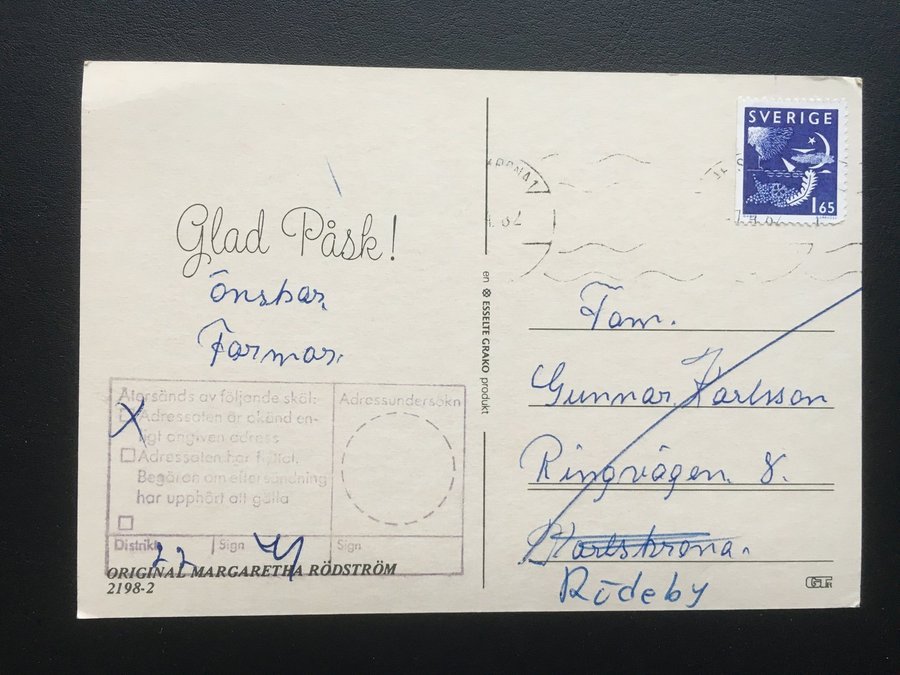 Glad Påsk!
Önskar.
Farmor.
Återsänds av följande skäl:
Adressaten är okänd en-
ligt angiven adress
Adressaten har flyttat.
Begäran om eftersändning
har upphört att gälla
Adressundersökn
Distrikt 22 Sign
Sign
ORIGINAL MARGARETHA RÖDSTRÖM
2198-2
en ESSELTE GRAKO produkt
SVERIGE
1 65
Fam.
Gunnar Karlsson
Ringvägen. 8.
Karlskrona.
Rödeby